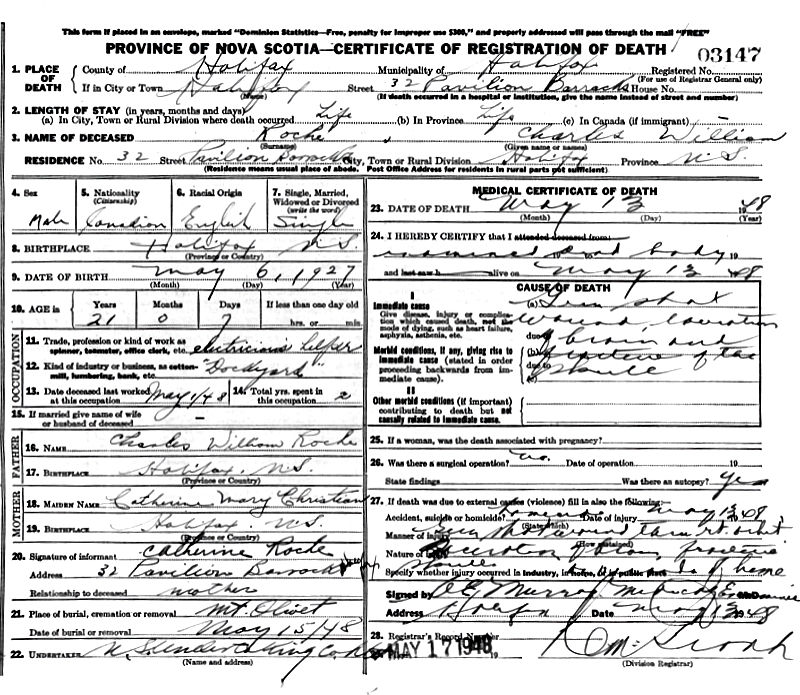 This form if placed in an envelope, marked "Dominion Statistics—Free, penalty for improper use $300," and properly addressed will pass through the mail "FREE"
PROVINCE OF NOVA SCOTIA—CERTIFICATE OF REGISTRATION OF DEATH 03147
1. PLACE OF DEATH County of Halifax Municipality of Halifax Registered No.
(For use of Registrar General only)
If in City or Town Halifax (Name) Street 32 Pavilion Barracks House No.
(If death occurred in a hospital or institution, give the name instead of street and number)
2. LENGTH OF STAY (in years, months and days)
(a) In City, Town or Rural Division where death occurred Life (b) In Province Life (c) In Canada (if immigrant)
3. NAME OF DECEASED Roche, Charles William
(Surname) (Given name or names)
RESIDENCE No. 32 Street Pavilion Barracks City, Town or Rural Division Halifax Province N.S.
(Residence means usual place of abode. Post Office Address for residents in rural parts not sufficient)
4. Sex Male
5. Nationality (Citizenship) Canadian
6. Racial Origin English
7. Single, Married, Widowed or Divorced (write the word) Single
8. BIRTHPLACE Halifax N.S.
(Province or Country)
9. DATE OF BIRTH May 6, 1927
(Month) (Day) (Year)
10. AGE in Years Months Days If less than one day old
21 0 7 hrs. or min.
OCCUPATION
11. Trade, profession or kind of work as spinner, teamster, office clerk, etc. electricians helper
12. Kind of industry or business, as cotton-mill, lumbering, bank, etc. Dockyard
13. Date deceased last worked at this occupation May 1/48 14. Total yrs. spent in this occupation 2
15. If married give name of wife or husband of deceased —
FATHER
16. NAME Charles William Roche
17. BIRTHPLACE Halifax, N.S.
(Province or Country)
MOTHER
18. MAIDEN NAME Catherine Mary Christian
19. BIRTHPLACE Halifax N.S.
(Province or Country)
20. Signature of informant Catherine Roche
Address 32 Pavilion Barracks
Relationship to deceased mother
21. Place of burial, cremation or removal Mt. Olivet
Date of burial or removal May 15/48
22. UNDERTAKER N.S. Undertaking Co.
(Name and address)
MEDICAL CERTIFICATE OF DEATH
23. DATE OF DEATH May 13 1948
(Month) (Day) (Year)
24. I HEREBY CERTIFY that I attended deceased from:
examined dead body 19
and last saw h alive on May 13 1948
CAUSE OF DEATH
I
Immediate cause (a) Gun shot
Give disease, injury or complication which caused death, not the mode of dying, such as heart failure, asphyxia, asthenia, etc.
wound, laceration
due to
of brain and
Morbid conditions, if any, giving rise to immediate cause (stated in order proceeding backwards from immediate cause)
(b) fracture of the
due to skull
(c)
II
Other morbid conditions (if important) contributing to death but not causally related to immediate cause
25. If a woman, was the death associated with pregnancy?
26. Was there a surgical operation? no. Date of operation 19
State findings Was there an autopsy? yes
27. If death was due to external causes (violence) fill in also the following:
Accident, suicide or homicide? Date of injury May 13 1948
(State which)
Manner of injury Gun shot wound rt. orbit
(How sustained)
Nature of injury Laceration of brain, fracture skull
Specify whether injury occurred in industry, in home, or public place home
Signed by Murray Medical Examiner
Address Halifax Date May 13 1948
28. Registrar's Record Number
MAY 17 1948 19
(Division Registrar)